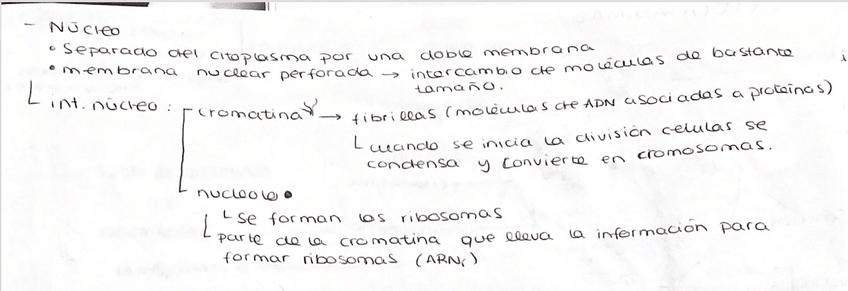 - Núcleo
• Separado del citoplasma por una doble membrana
• membrana nuclear perforada → intercambio de moléculas de bastante
tamaño.
int. núcleo: cromatina → fibrillas (moléculas de ADN asociadas a proteínas)
cuando se inicia la división celulas se
condensa y convierte en cromosomas.
nucleolo •
se forman los ribosomas
parte de la cromatina que lleva la información para
formar ribosomas (ARNr)